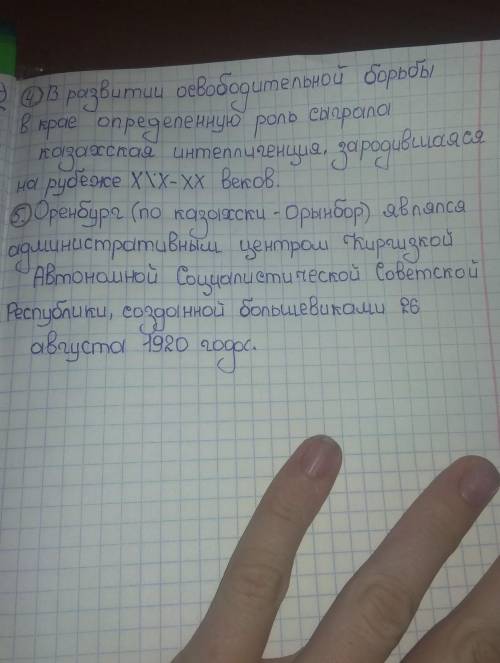 ④ В развитии освободительной борьбы
в крае определенную роль сыграла
казахская интеллигенция, зародившаяся
на рубеже XIX-XX веков.
⑤ Оренбург (по казахски - Орынбор) являлся
административным центром Киргизкой
Автономной Социалистической Советской
Республики, созданной большевиками 26
августа 1920 года.